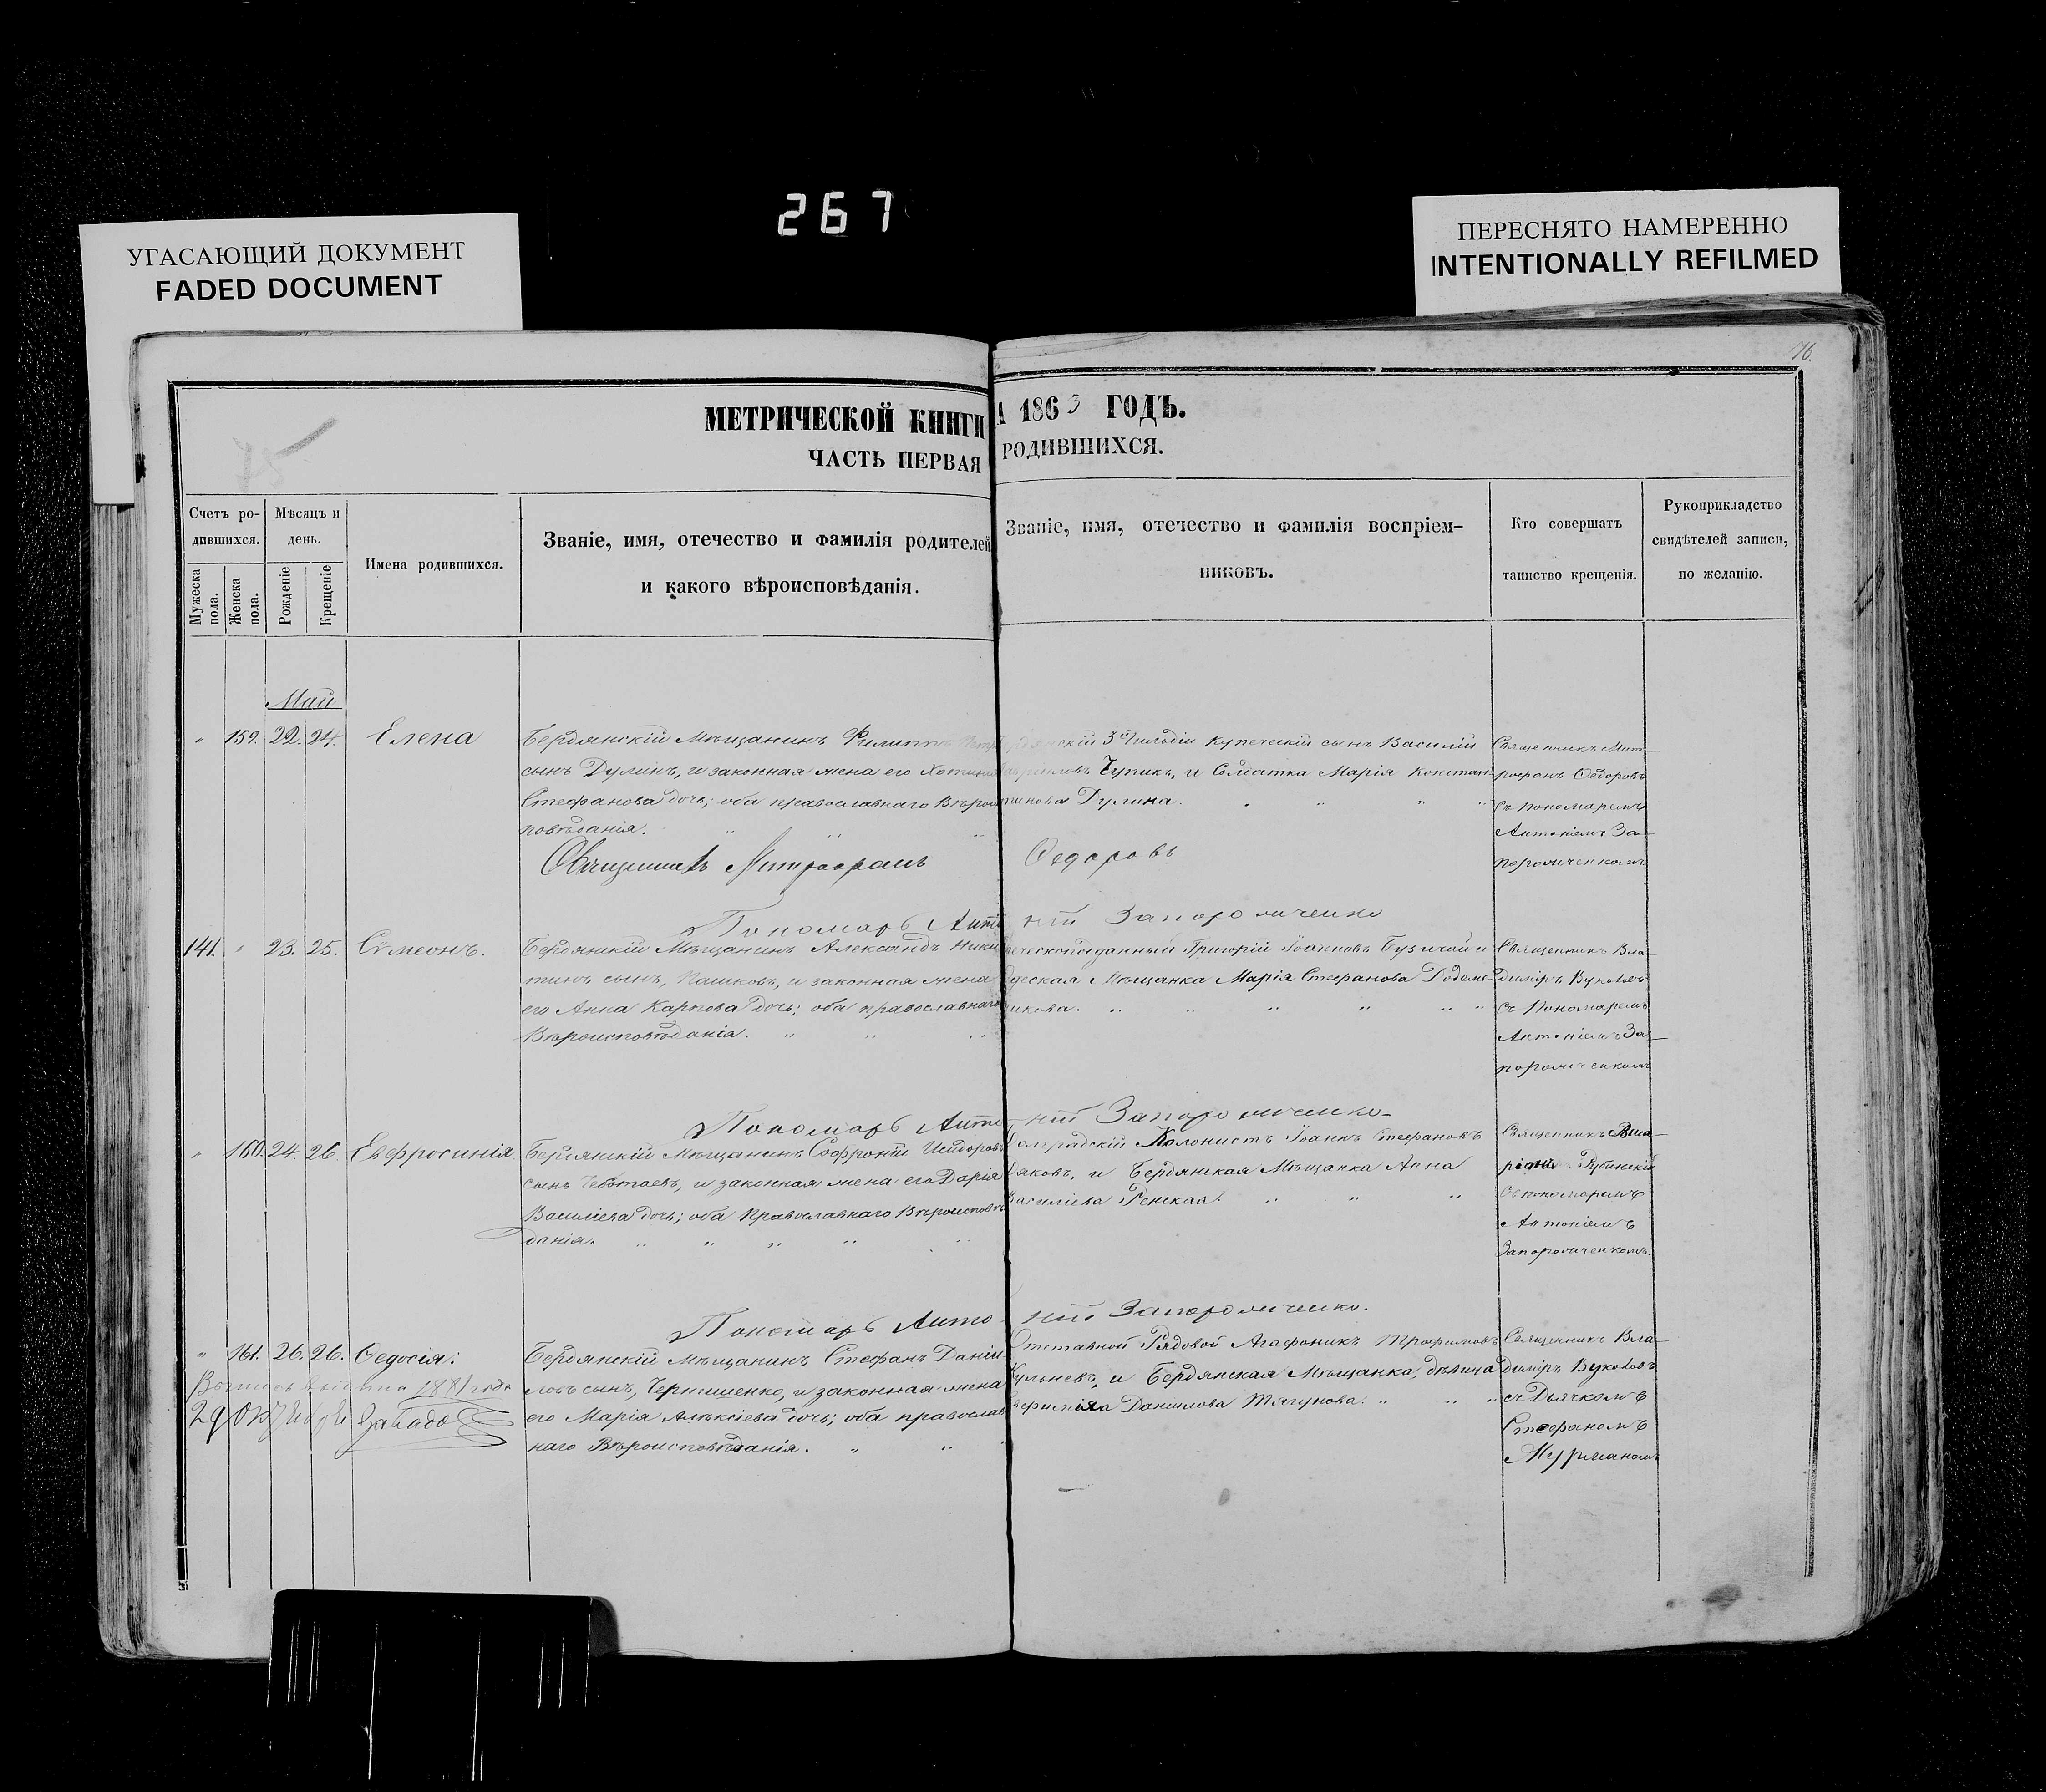 267
УГАСАЮЩИЙ ДОКУМЕНТ
FADED DOCUMENT
ПЕРЕСНЯТО НАМЕРЕННО
INTENTIONALLY REFILMED
76.
МЕТРИЧЕСКОЙ КНИГИ
А 1863 ГОДЪ.
ЧАСТЬ ПЕРВАЯ
РОДИВШИХСЯ.
Счетъ ро-
дившихся.
Мужеска пола.
Женска пола.
Мѣсяцъ и
день.
Рожденіе
Крещеніе
Имена родившихся.
Званіе, имя, отечество и фамилія родителей
и какого вѣроисповѣданія.
Званіе, имя, отечество и фамилія воспріем-
никовъ.
Кто совершатъ
таинство крещенія.
Рукоприкладство
свидѣтелей записи,
по желанію.
Май
" 159. 22. 24. Елена
Бердянскій Мѣщанинъ Филиппъ
сынъ Дулинъ, и законная жена его
Стефанова дочь; оба православнаго Вѣроис
повѣданія.
3й Гильдіи Купеческій сынъ Василій
Чупикъ, и Марія Констан-
тинова Дулина.
Священникъ Мит-
рофанъ Ѳедоровъ
съ пономаремъ
Антоніемъ За-
порожченкомъ
Священникъ Митрофанъ Ѳедоровъ
Пономарь Антоній Запорожченко
141. " 23. 25. Сѵмеонъ.
Бердянскій Мѣщанинъ Александъ Ники
тинъ сынъ, Пашковъ, и законная жена
его Анна Карпова дочь; оба православнаго
Вѣроисповѣданія.
Григорій Іоанновъ и
Мѣщанка Марія Стефанова
никова.
Священникъ Вла-
диміръ Вуколовъ
съ Пономаремъ
Антоніемъ За-
порожченкомъ
Пономарь Антоній Запорожченко
" 160. 24. 26. Евфросинія.
Бердянскій Мѣщанинъ Софроній Исидоровъ
сынъ Чеботаевъ, и законная жена его Дарія
Василіева дочь; оба Православнаго Вѣроисповѣ
данія.
Колонистъ Іоаннъ Стефановъ
и Бердянская Мѣщанка Анна
Василіева Ренская.
Священникъ
Рубинскій
Съ пономаремъ
Антоніемъ
Запорожченкомъ.
Пономарь Антоній Запорожченко.
" 161. 26. 26. Ѳедосія.
Бердянскій Мѣщанинъ Стефанъ Даніи
ловъ сынъ, Чернишенко, и законная жена
его Марія Алексіева дочь; оба православ
наго Вѣроисповѣданія.
Отставной Рядовой Агафоникъ Трофимовъ
и Бердянская Мѣщанка, дѣвица
Данилова Тягунова.
Священникъ Вла-
диміръ Вуколовъ
съ Дьячкомъ
Стефаномъ
Муржаномъ
1881 года
29